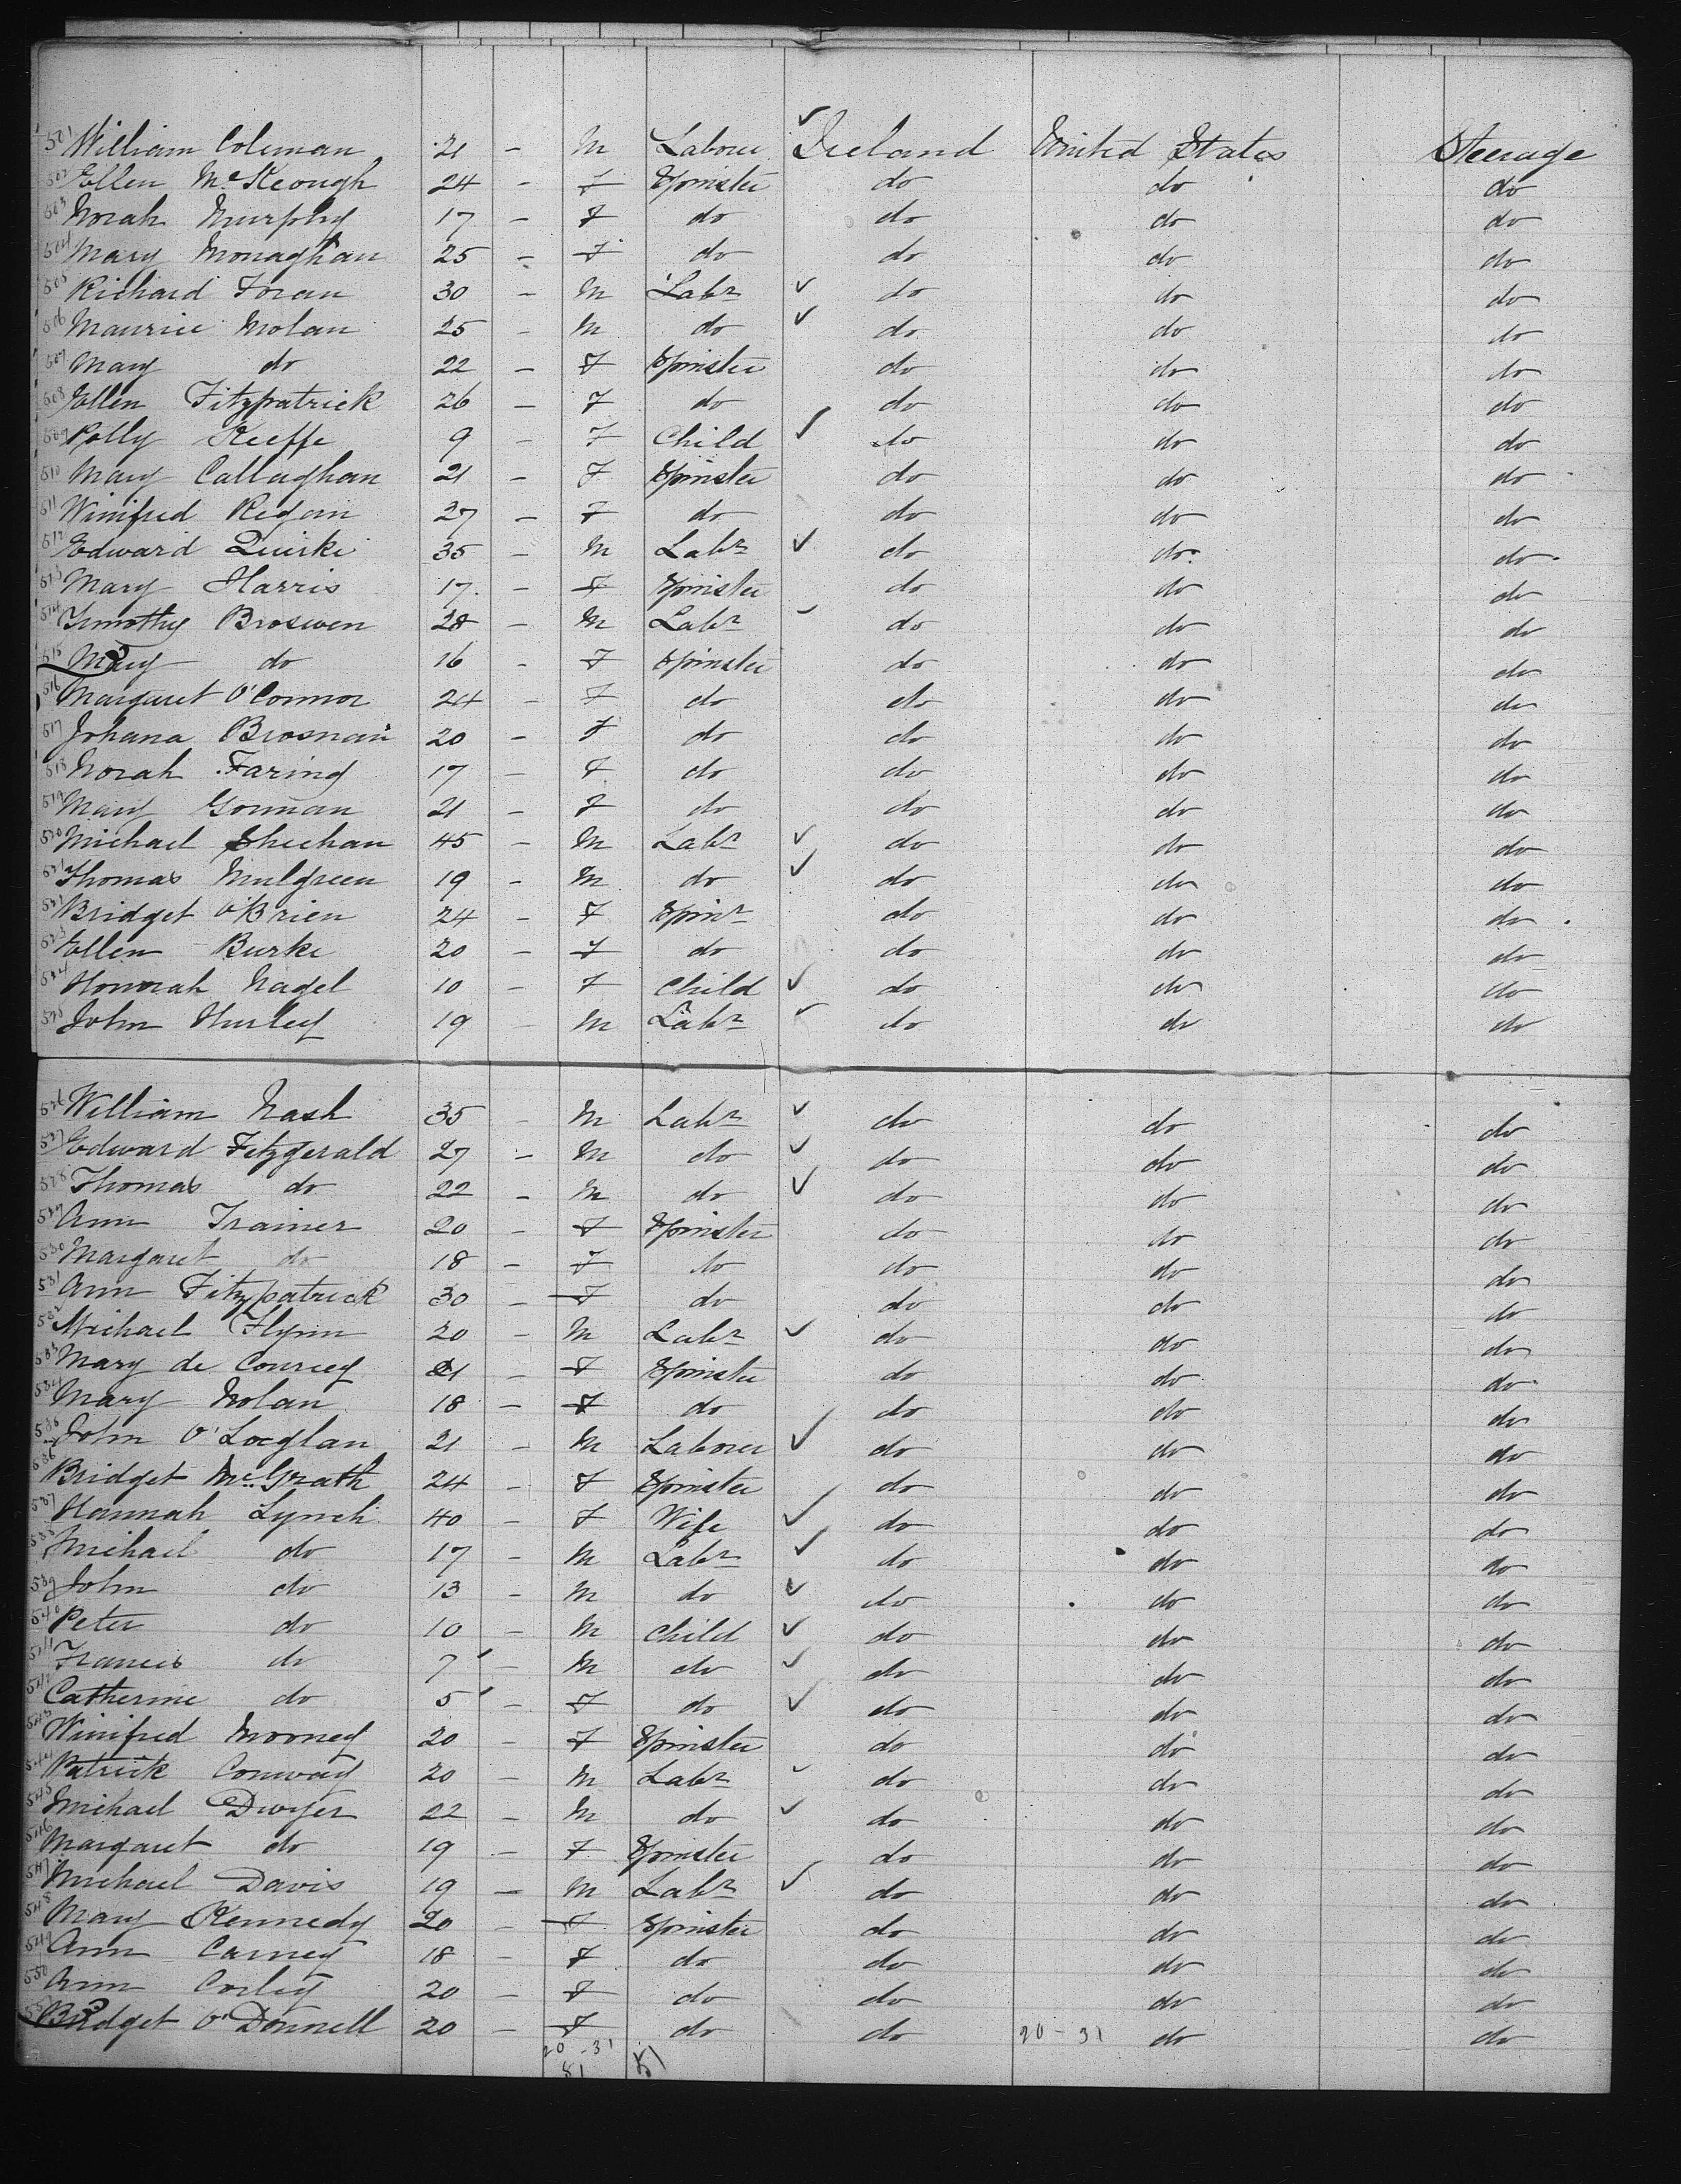 501 William Coleman 21 - M Laborer ✓ Ireland United States Steerage
502 Ellen McKeough 24 - F Spinster do do do
503 Norah Murphy 17 - F do do do do
504 Mary Monaghan 25 - F do do do do
505 Richard Foran 30 - M Labr ✓ do do do
506 Maurice Nolan 25 - M do ✓ do do do
507 Mary do 22 - F Spinster do do do
508 Ellen Fitzpatrick 26 - F do do do do
509 Polly Keeffe 9 - F Child ✓ do do do
510 Mary Callaghan 21 - F Spinster do do do
511 Winifred Regan 27 - F do do do do
512 Edward Quirke 35 - M Labr ✓ do do do
513 Mary Harris 17 - F Spinster do do do
514 Timothy Broswen 28 - M Labr ✓ do do do
515 Mary do 16 - F Spinster do do do
516 Margaret O'Connor 24 - F do do do do
517 Johana Brosnan 20 - F do do do do
518 Norah Faring 17 - F do do do do
519 Mary Gorman 21 - F do do do do
520 Michael Sheehan 45 - M Labr ✓ do do do
521 Thomas Mulgreen 19 - M do ✓ do do do
522 Bridget O'Brien 24 - F Spinr do do do
523 Ellen Burke 20 - F do do do do
524 Honorah Nagel 10 - F Child ✓ do do do
525 John Hurley 19 - M Labr ✓ do do do
526 William Nash 35 - M Labr ✓ do do do
527 Edward Fitzgerald 27 - M do ✓ do do do
528 Thomas do 22 - M do ✓ do do do
529 Ann Trainer 20 - F Spinster do do do
530 Margaret do 18 - F do do do do
531 Ann Fitzpatrick 30 - F do do do do
532 Michael Flynn 20 - M Labr ✓ do do do
533 Mary de Courcey 21 - F Spinster do do do
534 Mary Nolan 18 - F do do do do
535 John O'Loglan 21 - M Laborer ✓ do do do
536 Bridget McGrath 24 - F Spinster do do do
537 Hannah Lynch 40 - F Wife ✓ do do do
538 Michael do 17 - M Labr ✓ do do do
539 John do 13 - M do ✓ do do do
540 Peter do 10 - M Child ✓ do do do
541 Francis do 7 - M do ✓ do do do
542 Catherine do 5 - F do ✓ do do do
543 Winifred Mooney 20 - F Spinster do do do
544 Patrick Conway 20 - M Labr ✓ do do do
545 Michael Dwyer 22 - M do ✓ do do do
546 Margaret do 19 - F Spinster do do do
547 Michael Davis 19 - M Labr ✓ do do do
548 Mary Kennedy 20 - F Spinster do do do
549 Ann Carney 18 - F do do do do
550 Ann Corley 20 - F do do do do
551 Bridget O'Donnell 20 - F do do 20-31 do do
20-31
51 51